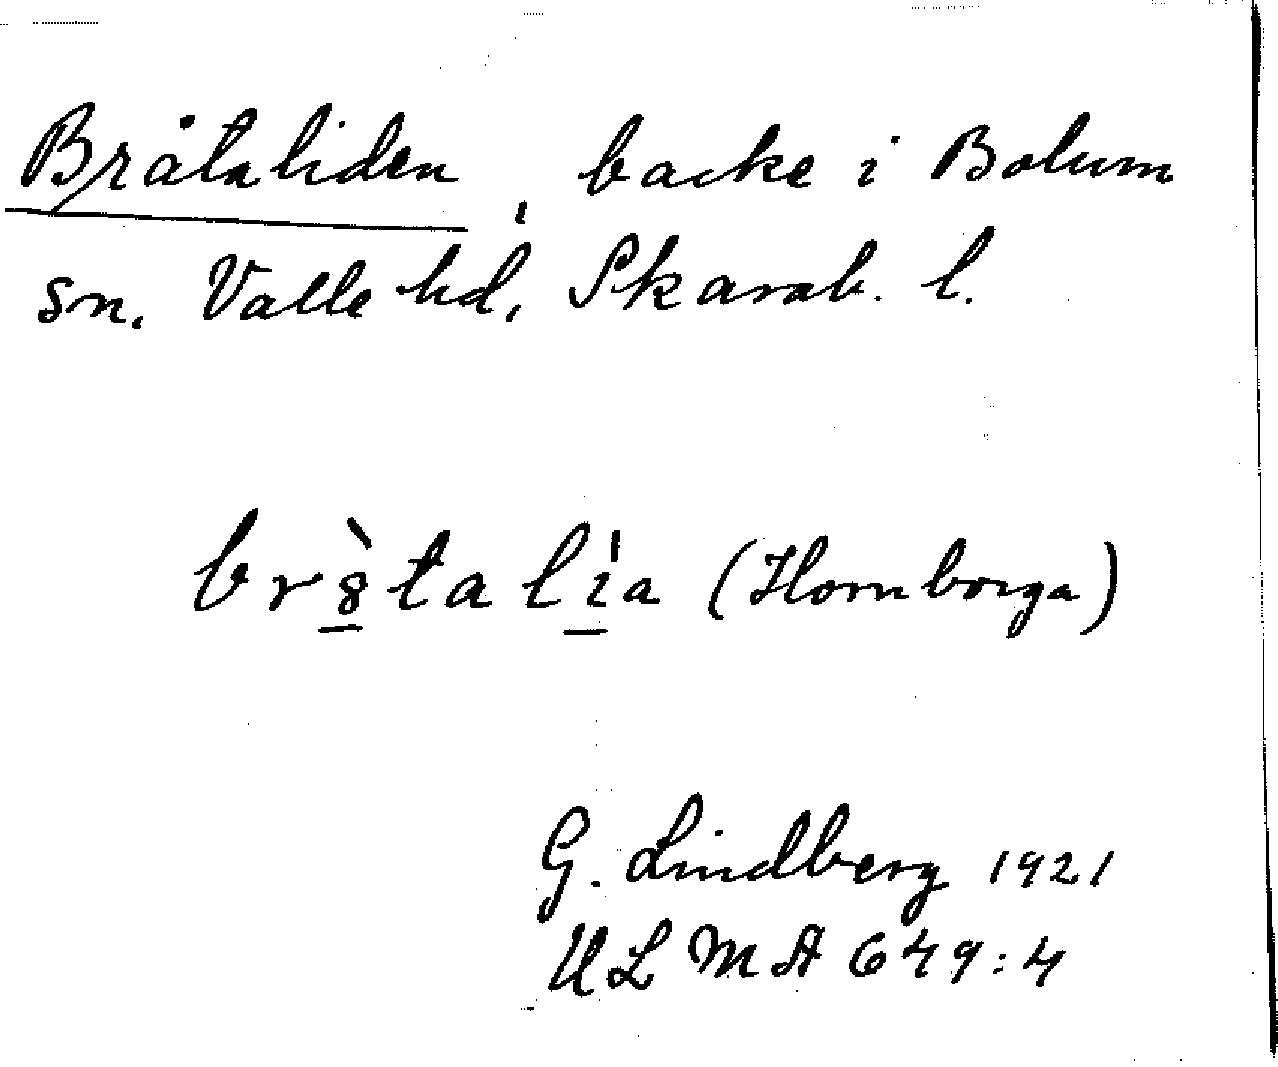 Bråtaliden, backe i Bolum
sn. Valle hd, Skarab. l.
br8̠̀talı̠́a (Hornborga)
G. Lindberg 1921
ULMA 649:4